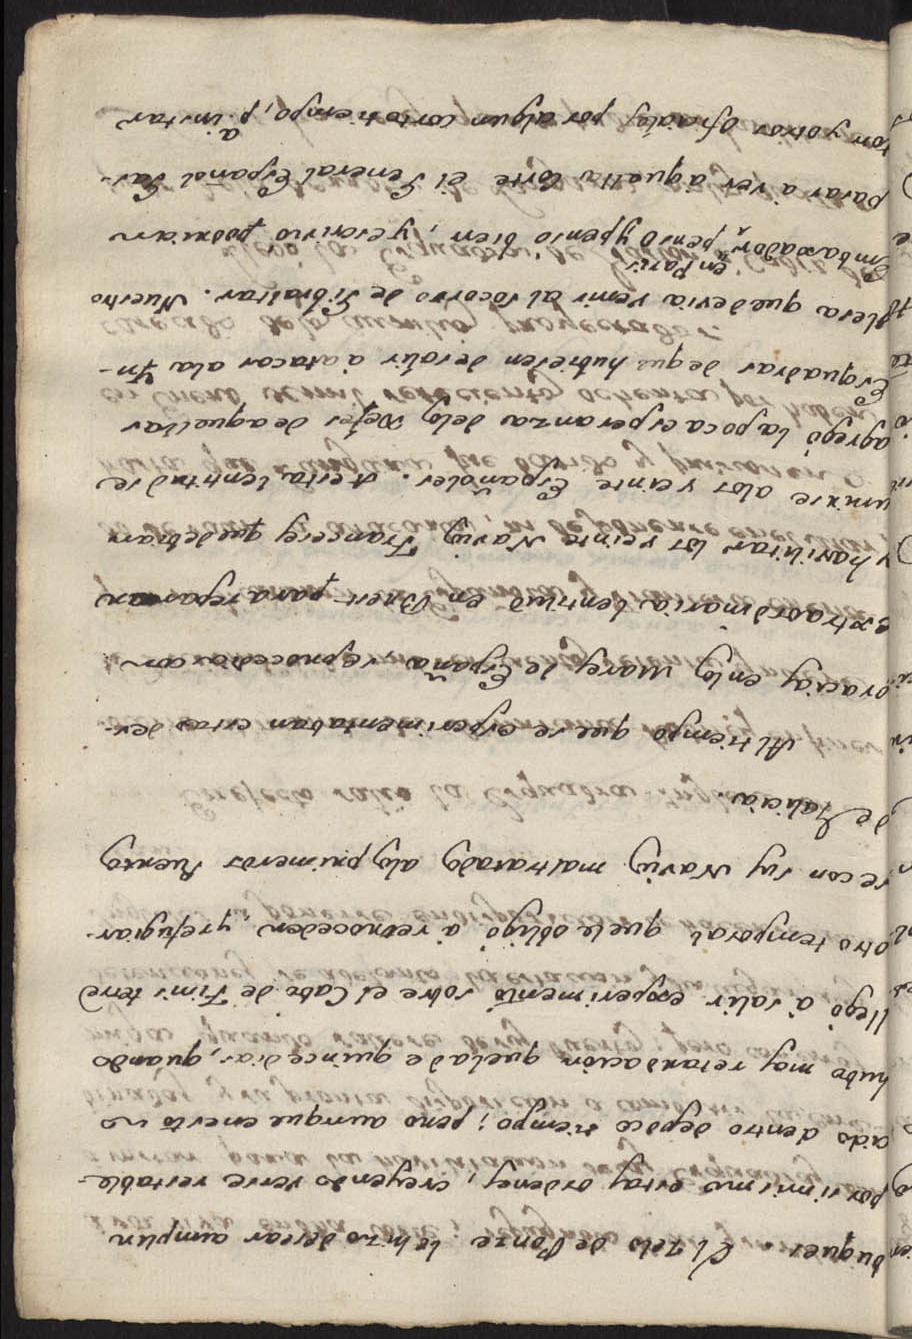 buques. El zelo de Ponze le hizo desear cumplir
por si mismo estas ordenes, creyendo verse restable-
cido dentro de poco tiempo; pero aunque en esto no
hubo mas retardacion que la de quince dias, quando
llegó à salir experimentó sobre el Cabo de Finis terre
Otro temporal que le obligó à retroceder, y refugiar-
se con sus Navios maltratados alos primeros Puertos
de Galicia.
Al tiempo que se experimentaban estas des-
gracias en los Mares de España, se procedia con
extraordinaria lentitud en Brest para reparar
y havilitar los veinte Navios Franceses que debian
unirse alos veinte Españoles. A esta lentitud se
agregó la poca esperanza delos Xefes de aquellas
Esquadras de que hubiesen de salir à atacar ala Yn-
glesa que devia venir al socorro de Gibraltar. Nuestro
Embaxador en Paris, pensó y penso bien, y escrivio podrian
pasar à ver à aquella Corte el General Español Gas-
ton y otros Oficiales por algun corto tiempo, p.a instar